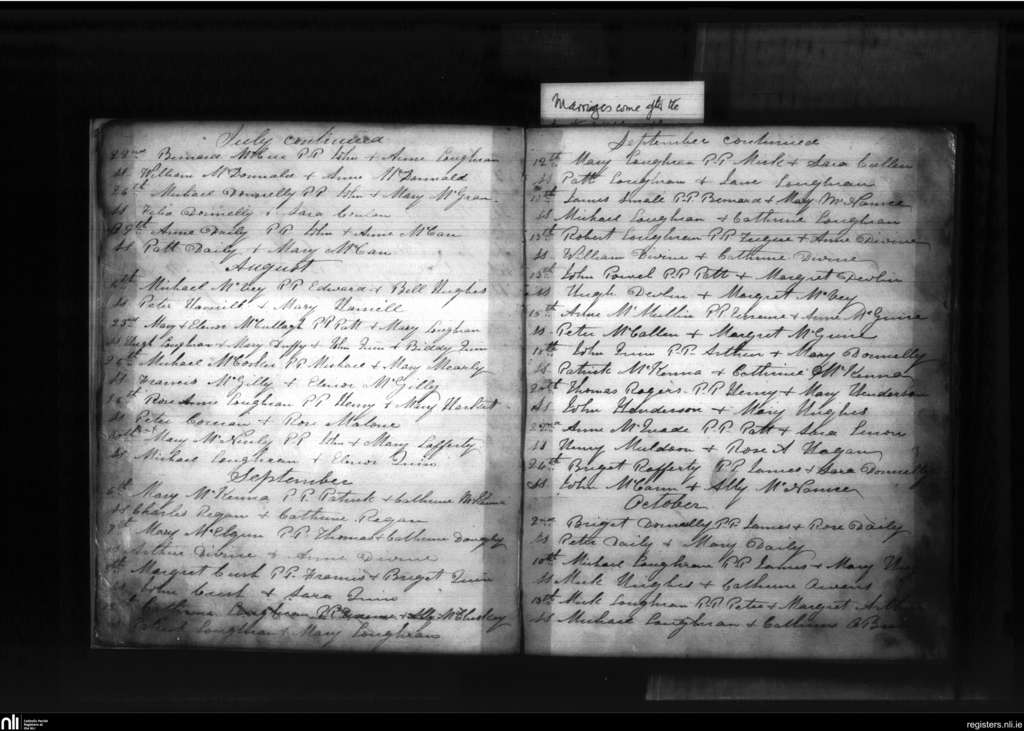 Marriages come after the
July continued
22nd Bernard McGee PP John + Anne Loughran
ss William McDonnald + Anne McDonnald
26th Michael Donnelly PP John + Mary
ss Felix Donnelly + Sara Conlon
29th Anne Daily PP John + Anne McCan
ss Patt Daily + Mary McCan
August
Michael McVey PP Edward + Bell Hughes
ss Peter Hamill + Mary Hamill
23rd Mary + Elenor McCullagh PP Patt + Mary Loughran
ss Hugh Loughran + Mary Duffy + John Quin + Biddy Quin
Michael McCooker PP Michael + Mary Mearly
ss Francis McGilly + Elenor McGilly
26th Rose Anne Loughran PP Henry + Mary Harbest
ss Peter Corean + Rose Malone
Mary McNeely PP John + Mary Lafferty
ss Michael Loughran + Elenor Quin
September
6th Mary McKenna PP Patrick + Catherine McKenna
ss Charles Regan + Catherine Regan
7th Mary McElgun PP Thomas + Catherine
Arthur Divine + Anne Divine
Margret Cush PP Francis + Briget Quin
John Cush + Sara Quin
Catherine Loughran PP + Ally McCluskey
Patrick Loughran + Mary Loughran
September continued
12th Mary Loughran PP Mick + Sara Cullen
ss Patt Loughran + Jane Loughran
James Small PP Bernard + Mary McNamee
ss Michael Loughran + Catherine Loughran
13th Robert Loughran PP + Anne Divine
ss William Divine + Catherine Divine
15th John Powel PP Patt + Margret Devlin
ss Hugh Devlin + Margret McVey
15th Anne McMullin PP + Anne McGuire
ss Peter McCallen + Margret McGuire
John Quin PP Arthur + Mary Donnelly
ss Patrick McKenna + Catherine McKenna
20th Thomas Rogers PP Henry + Mary Henderson
ss John Henderson + Mary Hughes
22nd Anne McQuade PP Patt + Sara
ss Henry Muldoon + Rose A Hagan
26th Briget Rafferty PP James + Sara Donnelly
ss John McCann + Ally McNamee
October
2nd Briget Donnelly PP James + Rose Daily
ss Peter Daily + Mary Daily
10th Michael Loughran PP James + Mary
ss Mick Hughes + Catherine
13th Mick Loughran PP Peter + Margret
ss Michael Loughran + Catherine
nli
Catholic Parish
Registers at
the NLI
registers.nli.ie